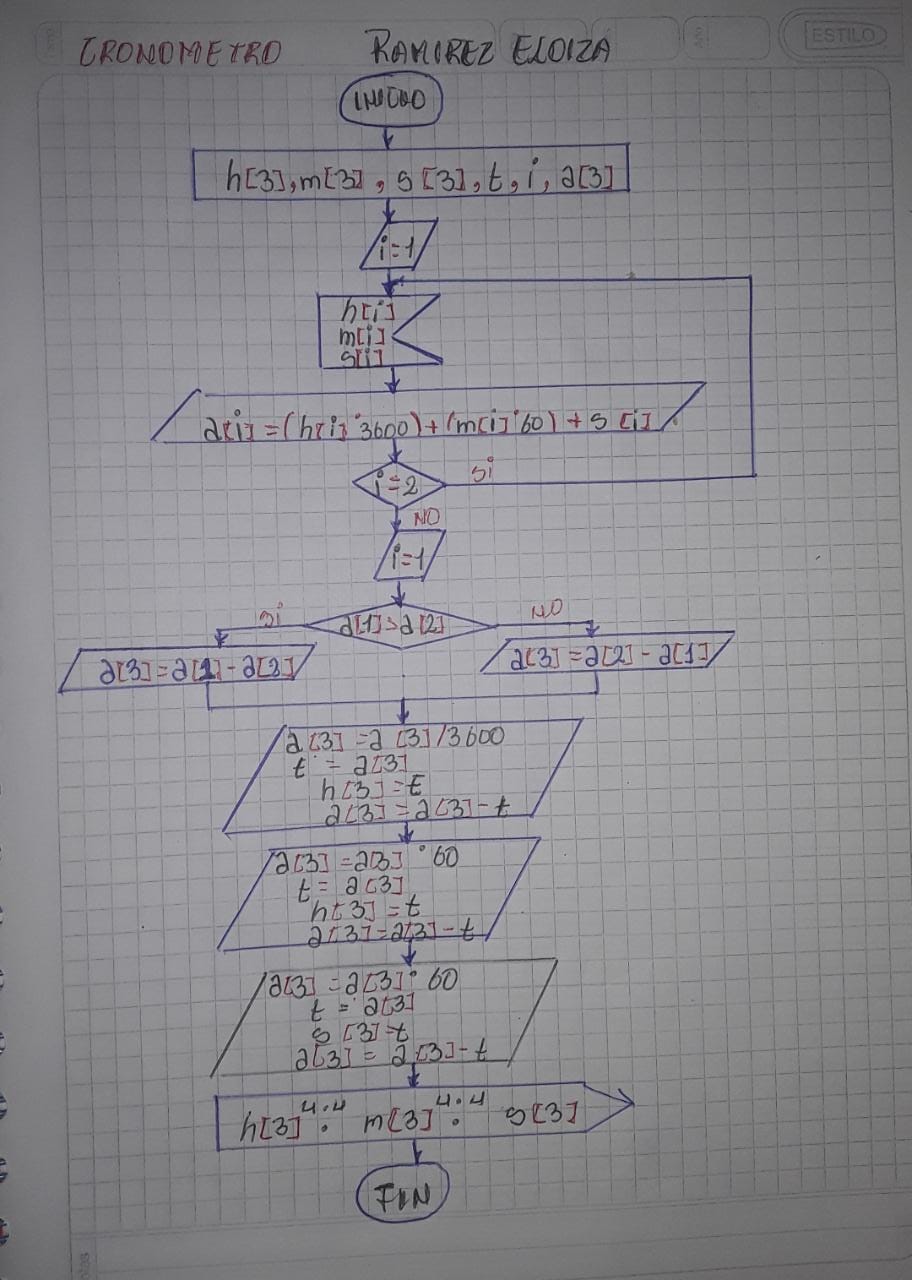 CRONOMETRO RAMIREZ ELOIZA
ESTILO
INICIO
h[3], m[3], s[3], t, i, a[3]
i=1
h[i]
m[i]
s[i]
a[i]=(h[i]*3600)+(m[i]*60)+s[i]
i=2 si
NO
i=1
si a[1]>a[2] NO
a[3]=a[1]-a[2] a[3]=a[2]-a[1]
a[3]=a[3]/3600
t=a[3]
h[3]=t
a[3]=a[3]-t
a[3]=a[3]*60
t=a[3]
h[3]=t
a[3]=a[3]-t
a[3]=a[3]*60
t=a[3]
s[3]=t
a[3]=a[3]-t
h[3] ":" m[3] ":" s[3]
FIN